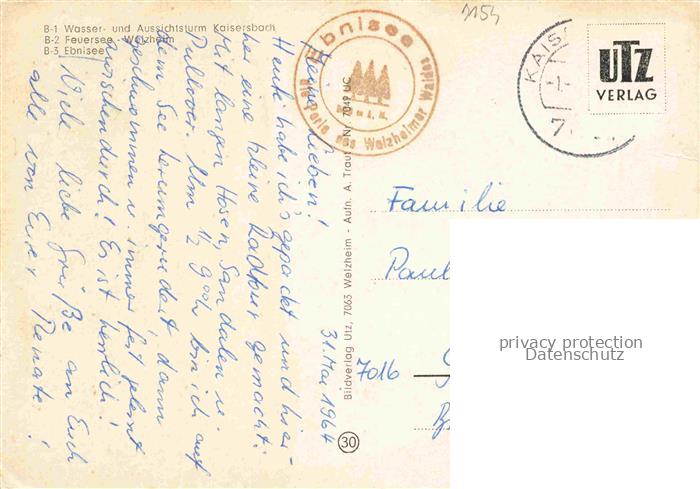 B-1 Wasser- und Aussichtsturm Kaisersbach
B-2 Feuersee - Welzheim
B-3 Ebnisee
3154
Ebnisee
die Perle des Welzheimer Waldes
KAIS
UTZ
VERLAG
31. Mai 1964
Meine Lieben!
Heute habe ich's gepackt und hier-
her eine kleine Radtour gemacht:
Mit langen Hosen, Sandalen u.
Pullover. Um 1/2 9 Uhr bin ich auf
dem See herumgerudert, dann
geschwommen u. immer fest plasst
zwischendurch! Es ist herrlich!
Viele liebe Grüße an Euch
alle von Eurer Renate!
Bildverlag Utz, 7063 Welzheim - Aufn. A. Traut Nr. 7049 UC
30
Familie
Paul
7016
privacy protection
Datenschutz